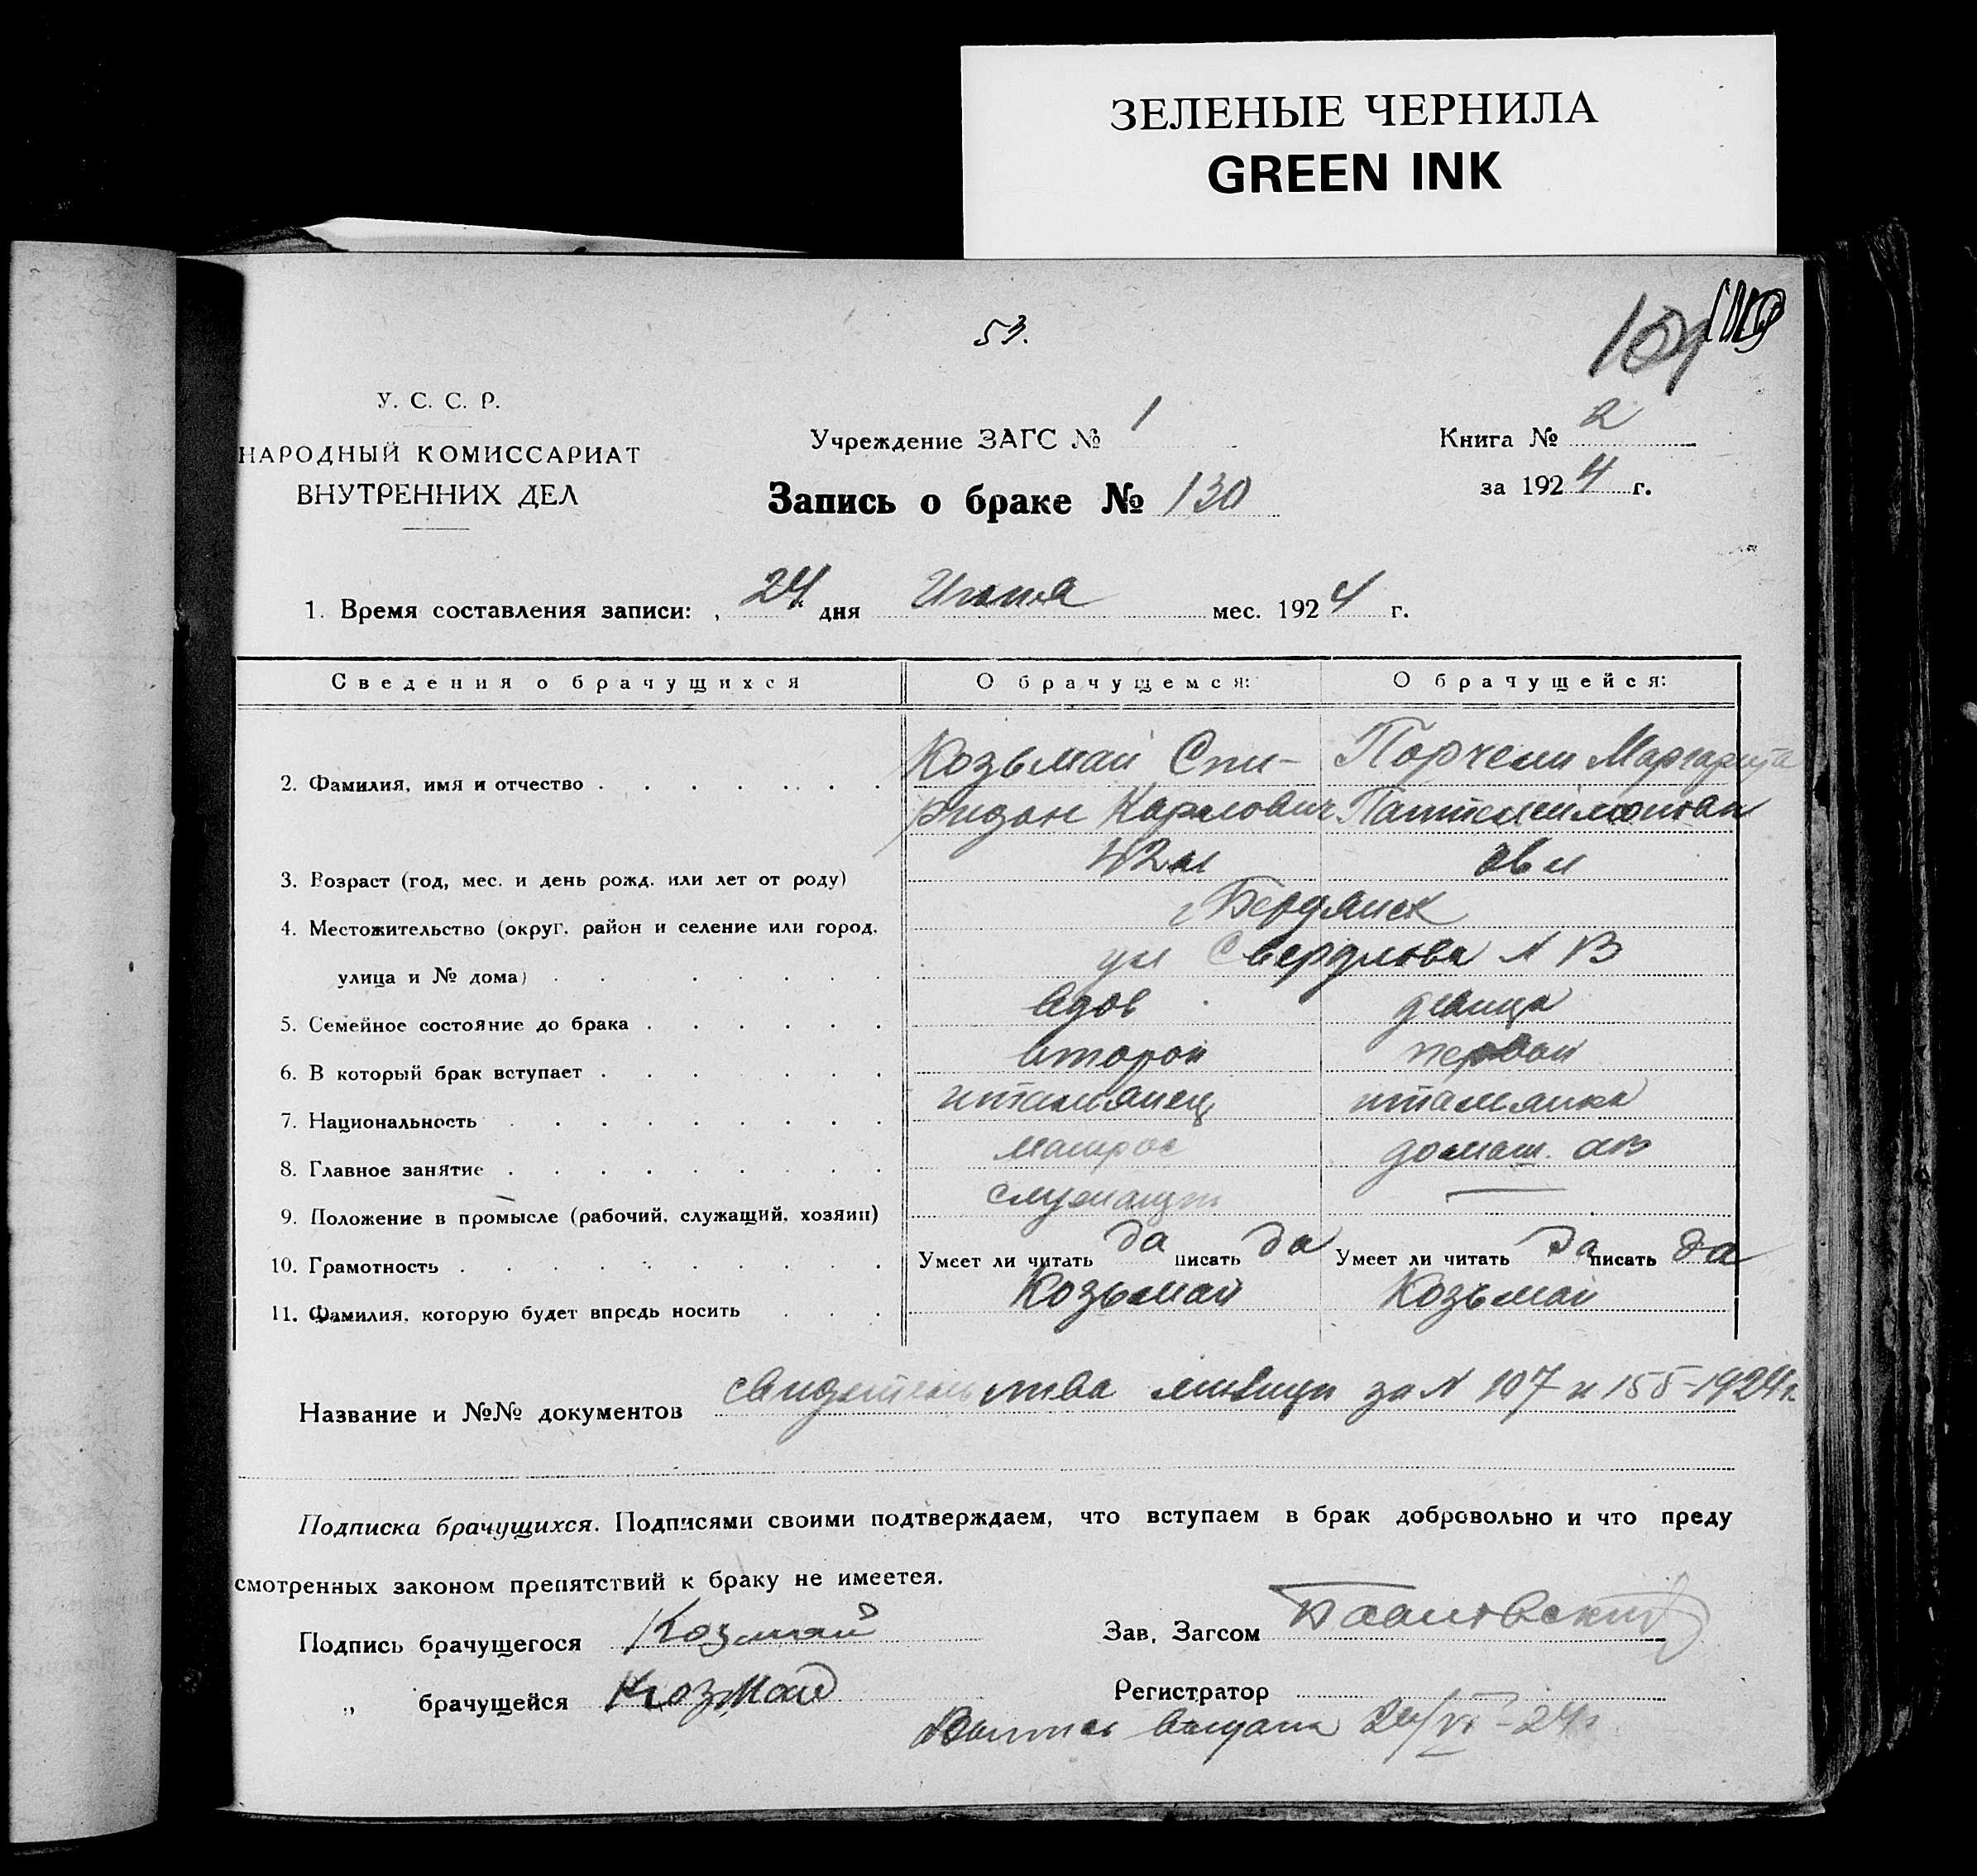 ЗЕЛЕНЫЕ ЧЕРНИЛА
GREEN INK
53.
У. С. С. Р.
НАРОДНЫЙ КОМИССАРИАТ
ВНУТРЕННИХ ДЕЛ
Учреждение ЗАГС № 1
Книга № 2
Запись о браке № 130
за 1924 г.
1. Время составления записи: 24 дня Июня мес. 1924 г.
Сведения о брачущихся О брачущемся: О брачущейся:
Козьмай Спи- Порчели Маргарита
2. Фамилия, имя и отчество
ридон Карлович Пантелеймонан
3. Возраст (год, мес. и день рожд. или лет от роду) 42 л
г Бердянск
4. Местожительство (округ. район и селение или город.
улица и № дома) ул Свердлова N
5. Семейное состояние до брака вдов девица
6. В который брак вступает второй первый
7. Национальность итальянец итальянка
8. Главное занятие матрос домаш.
9. Положение в промысле (рабочий, служащий, хозяин) служащий —
10. Грамотность Умеет ли читать да писать да Умеет ли читать да писать да
11. Фамилия, которую будет впредь носить Козьмай Козьмай
Название и №№ документов свидетельства милиции за N 107 и 155-1924г.
Подписка брачущихся. Подписями своими подтверждаем, что вступаем в брак добровольно и что преду
смотренных законом препятствий к браку не имеется.
Подпись брачущегося Козмай Зав. Загсом
„ брачущейся Козмай Регистратор
выдана 24/VI-24г.